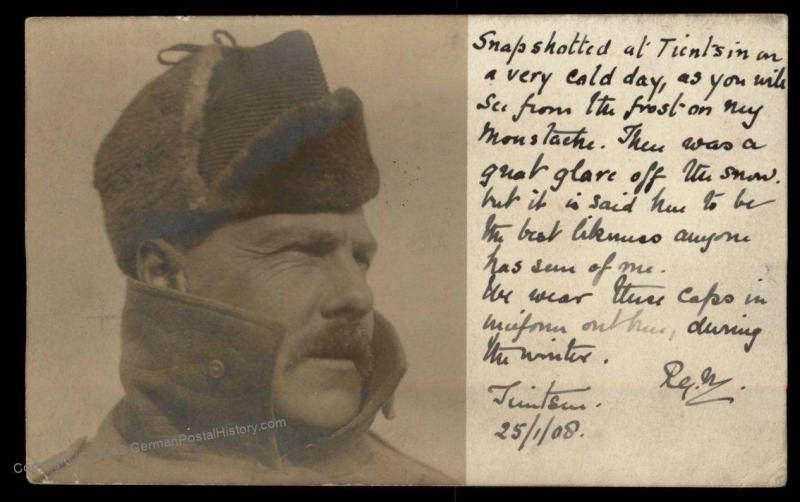 Snapshotted at Tientsin on
a very cold day, as you will
see from the frost on my
Moustache. There was a
great glare off the snow.
but it is said here to be
the best likeness anyone
has seen of me.
We wear these caps in
uniform out here, during
the winter.
Tientsin.
25/1/08.
GermanPostalHistory.com